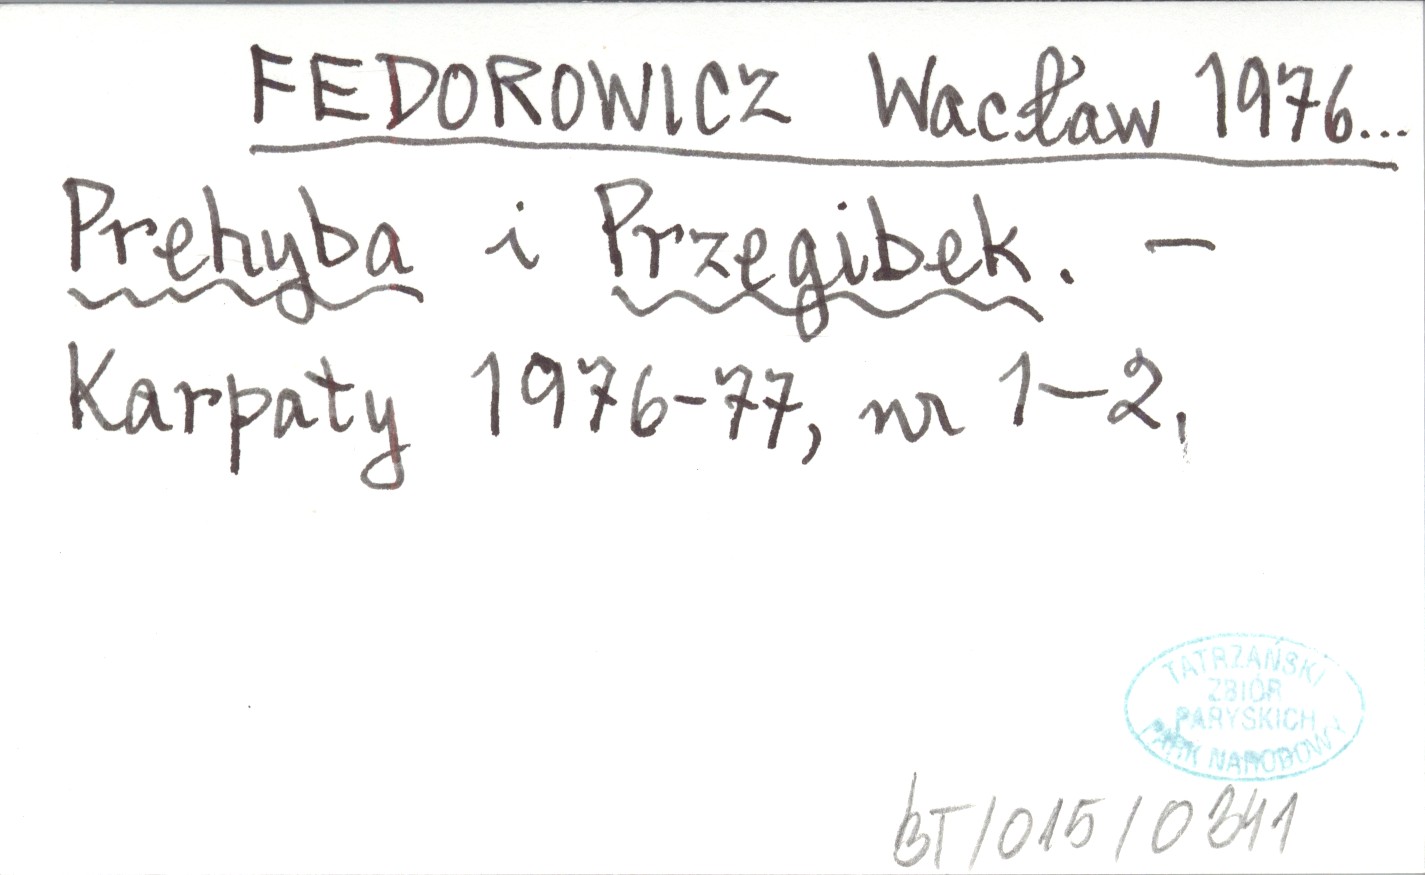 FEDOROWICZ Wacław 1976...
Prehyba i Przegibek. —
Karpaty 1976-77, nr 1-2,
TATRZAŃSKI
ZBIÓR
PARYSKICH
PARK NARODOWY
BT/015/0341